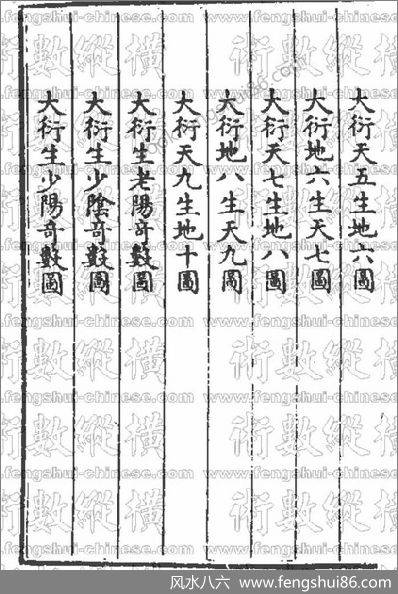 大衍天五生地六圖
大衍地六生天七圖
大衍天七生地八圖
大衍地八生天九圖
大衍天九生地十圖
大衍生老陽奇數圖
大衍生少陰奇數圖
大衍生少陽奇數圖
術數縱橫
www.fengshui-chinese.com
风水八六 www.fengshui86.com